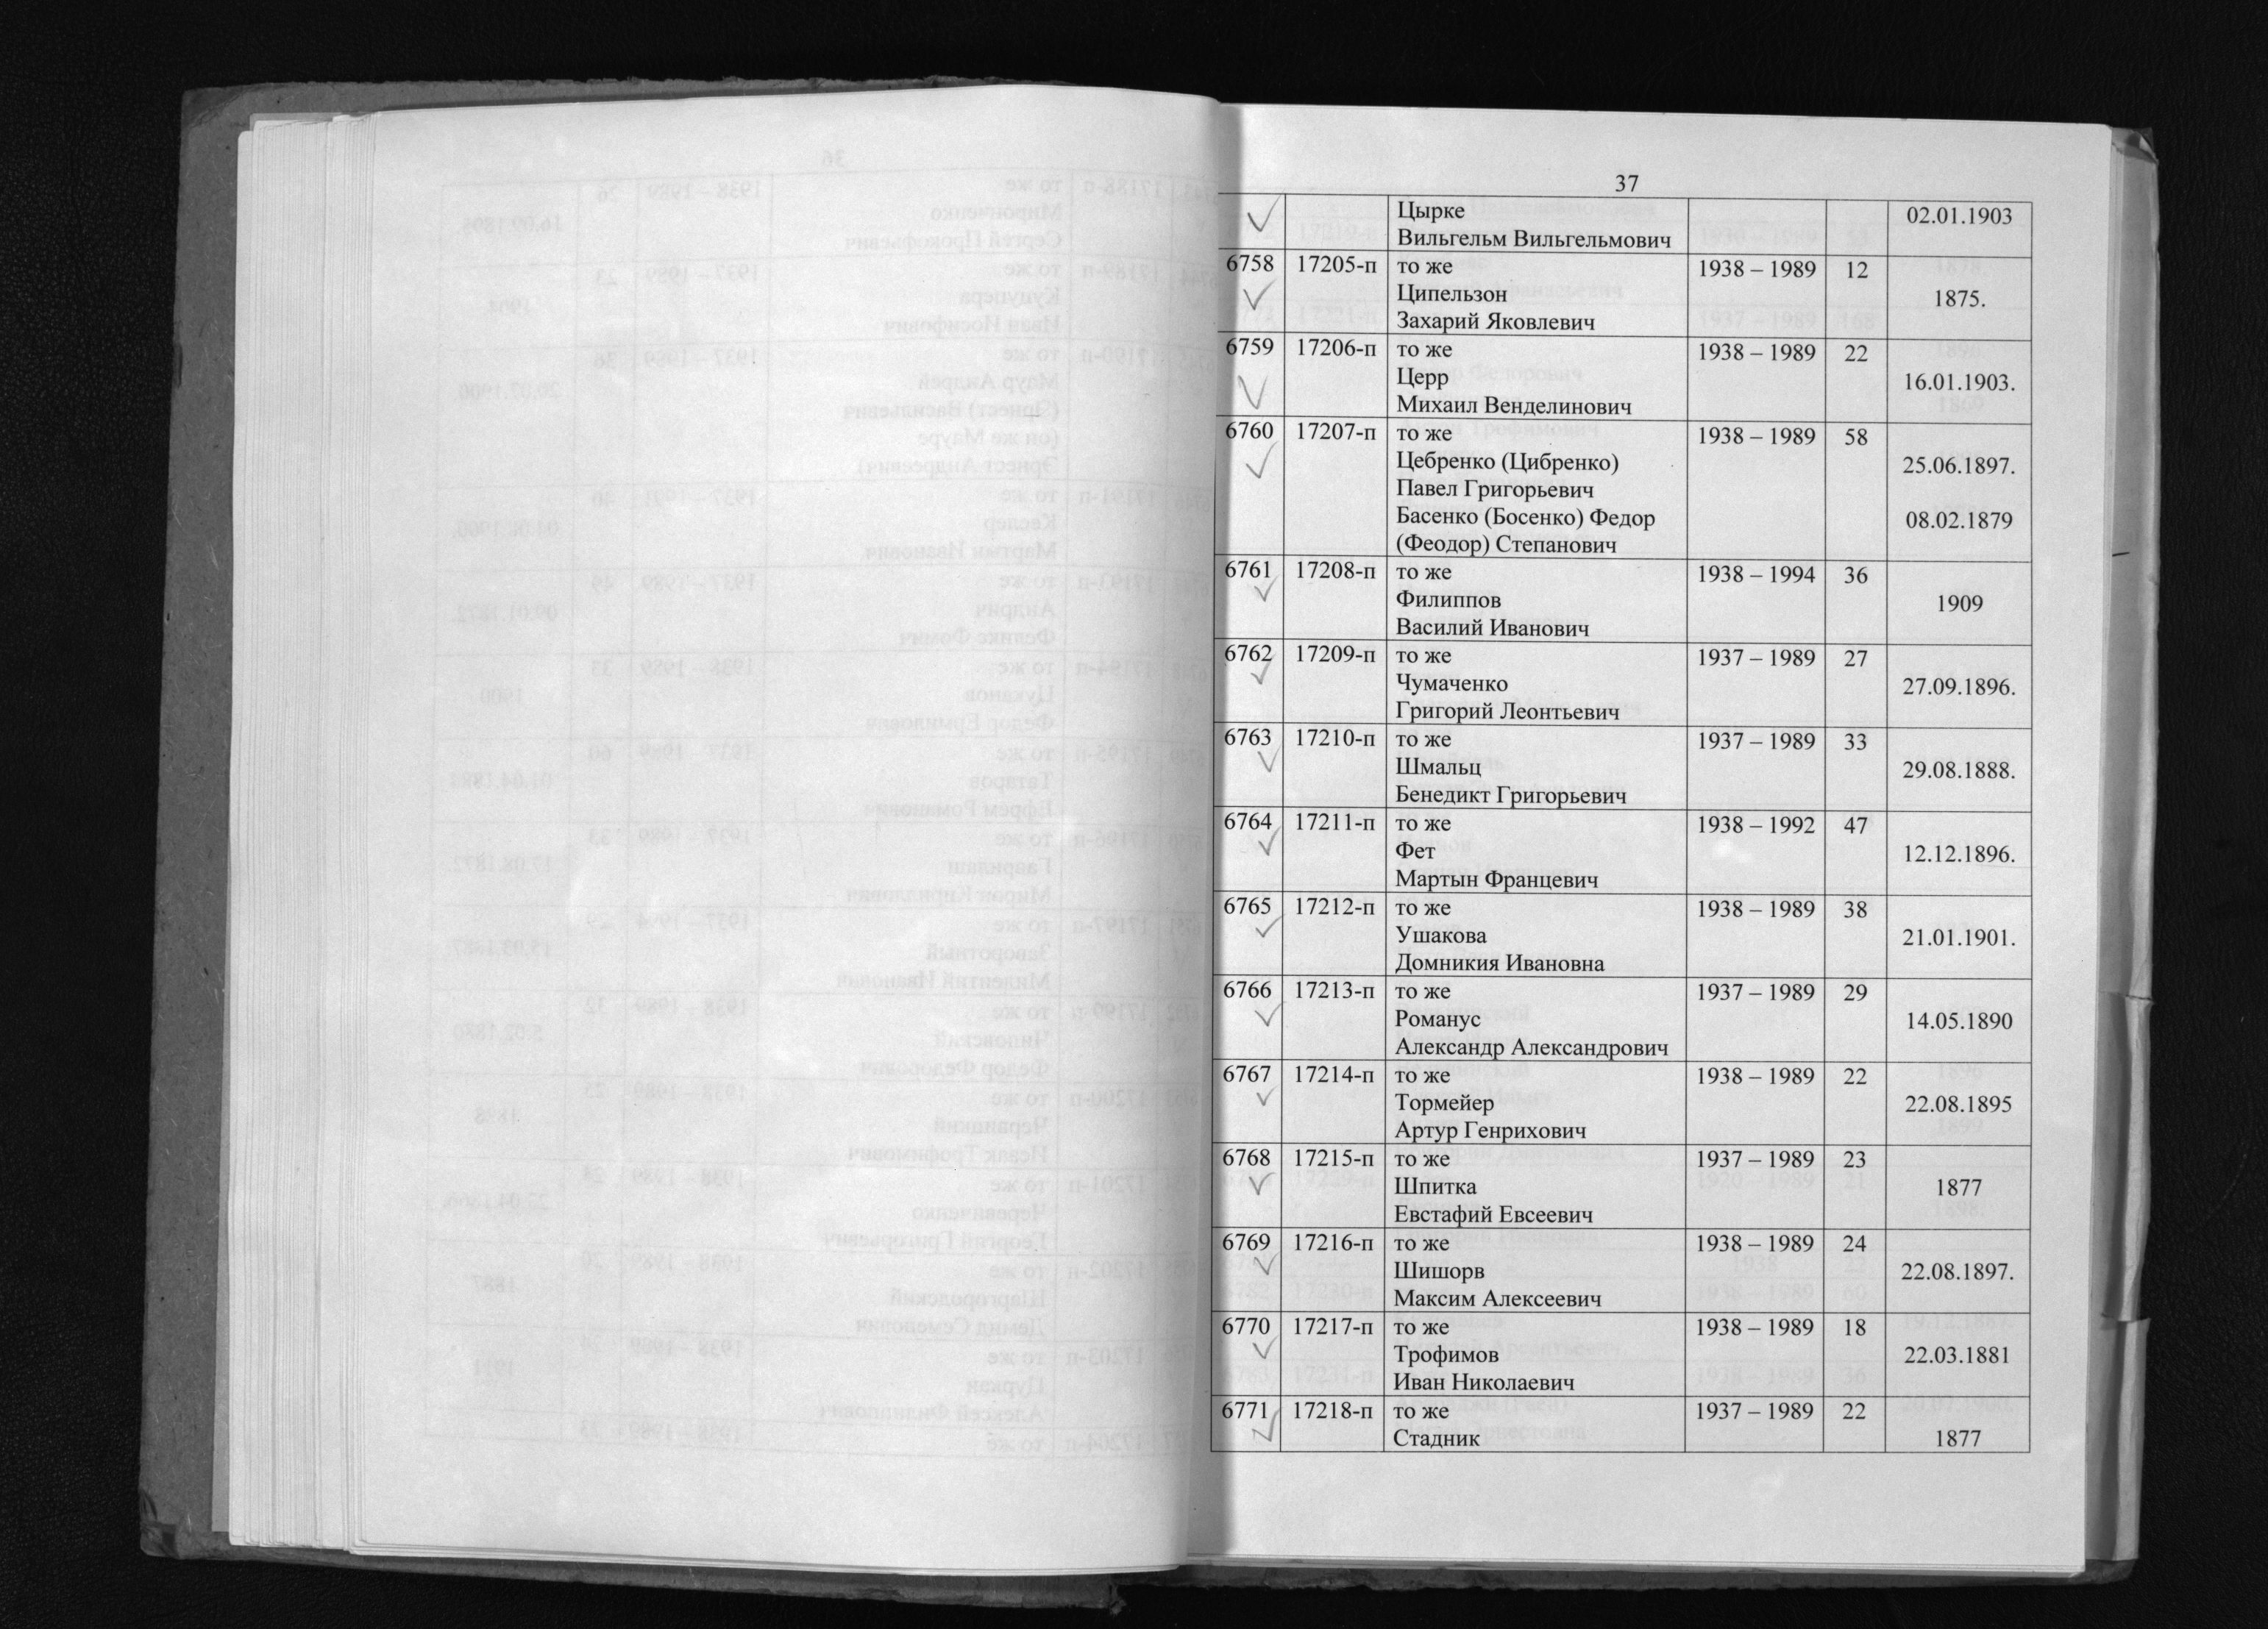 37
Цырке 02.01.1903
Вильгельм Вильгельмович
6758 17205-п то же 1938 – 1989 12
Ципельзон 1875.
Захарий Яковлевич
6759 17206-п то же 1938 – 1989 22
Церр 16.01.1903.
Михаил Венделинович
6760 17207-п то же 1938 – 1989 58
Цебренко (Цибренко) 25.06.1897.
Павел Григорьевич
Басенко (Босенко) Федор 08.02.1879
(Феодор) Степанович
6761 17208-п то же 1938 – 1994 36
Филиппов 1909
Василий Иванович
6762 17209-п то же 1937 – 1989 27
Чумаченко 27.09.1896.
Григорий Леонтьевич
6763 17210-п то же 1937 – 1989 33
Шмальц 29.08.1888.
Бенедикт Григорьевич
6764 17211-п то же 1938 – 1992 47
Фет 12.12.1896.
Мартын Францевич
6765 17212-п то же 1938 – 1989 38
Ушакова 21.01.1901.
Домникия Ивановна
6766 17213-п то же 1937 – 1989 29
Романус 14.05.1890
Александр Александрович
6767 17214-п то же 1938 – 1989 22
Тормейер 22.08.1895
Артур Генрихович
6768 17215-п то же 1937 – 1989 23
Шпитка 1877
Евстафий Евсеевич
6769 17216-п то же 1938 – 1989 24
Шишорв 22.08.1897.
Максим Алексеевич
6770 17217-п то же 1938 – 1989 18
Трофимов 22.03.1881
Иван Николаевич
6771 17218-п то же 1937 – 1989 22
Стадник 1877